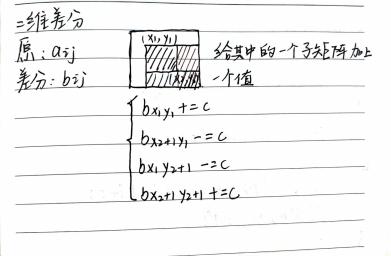 二维差分
原：aij
差分：bij
(x1, y1)
(x2, y2)
给其中的一个子矩阵加上
一个值
bx1y1 += c
bx2+1y1 -= c
bx1y2+1 -= c
bx2+1 y2+1 += c